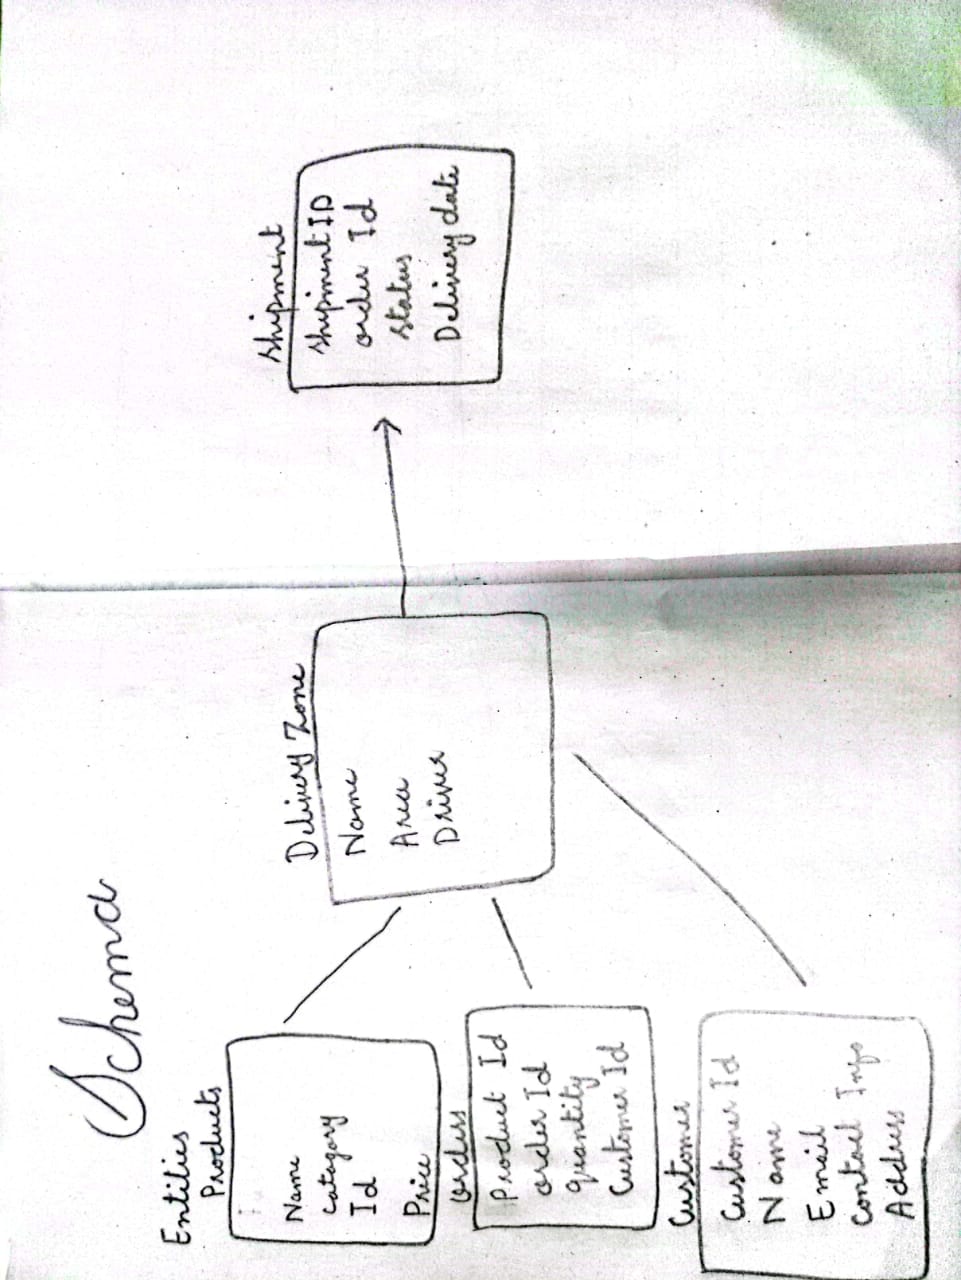 Schema
Entities
Products
Name
Category
Id
Price
Orders
Product Id
Order Id
Quantity
Customer Id
Customer
Customer Id
Name
Email
Contact Info
Address
Delivery Zone
Name
Area
Driver
Shipment
Shipment ID
Order Id
Status
Delivery date